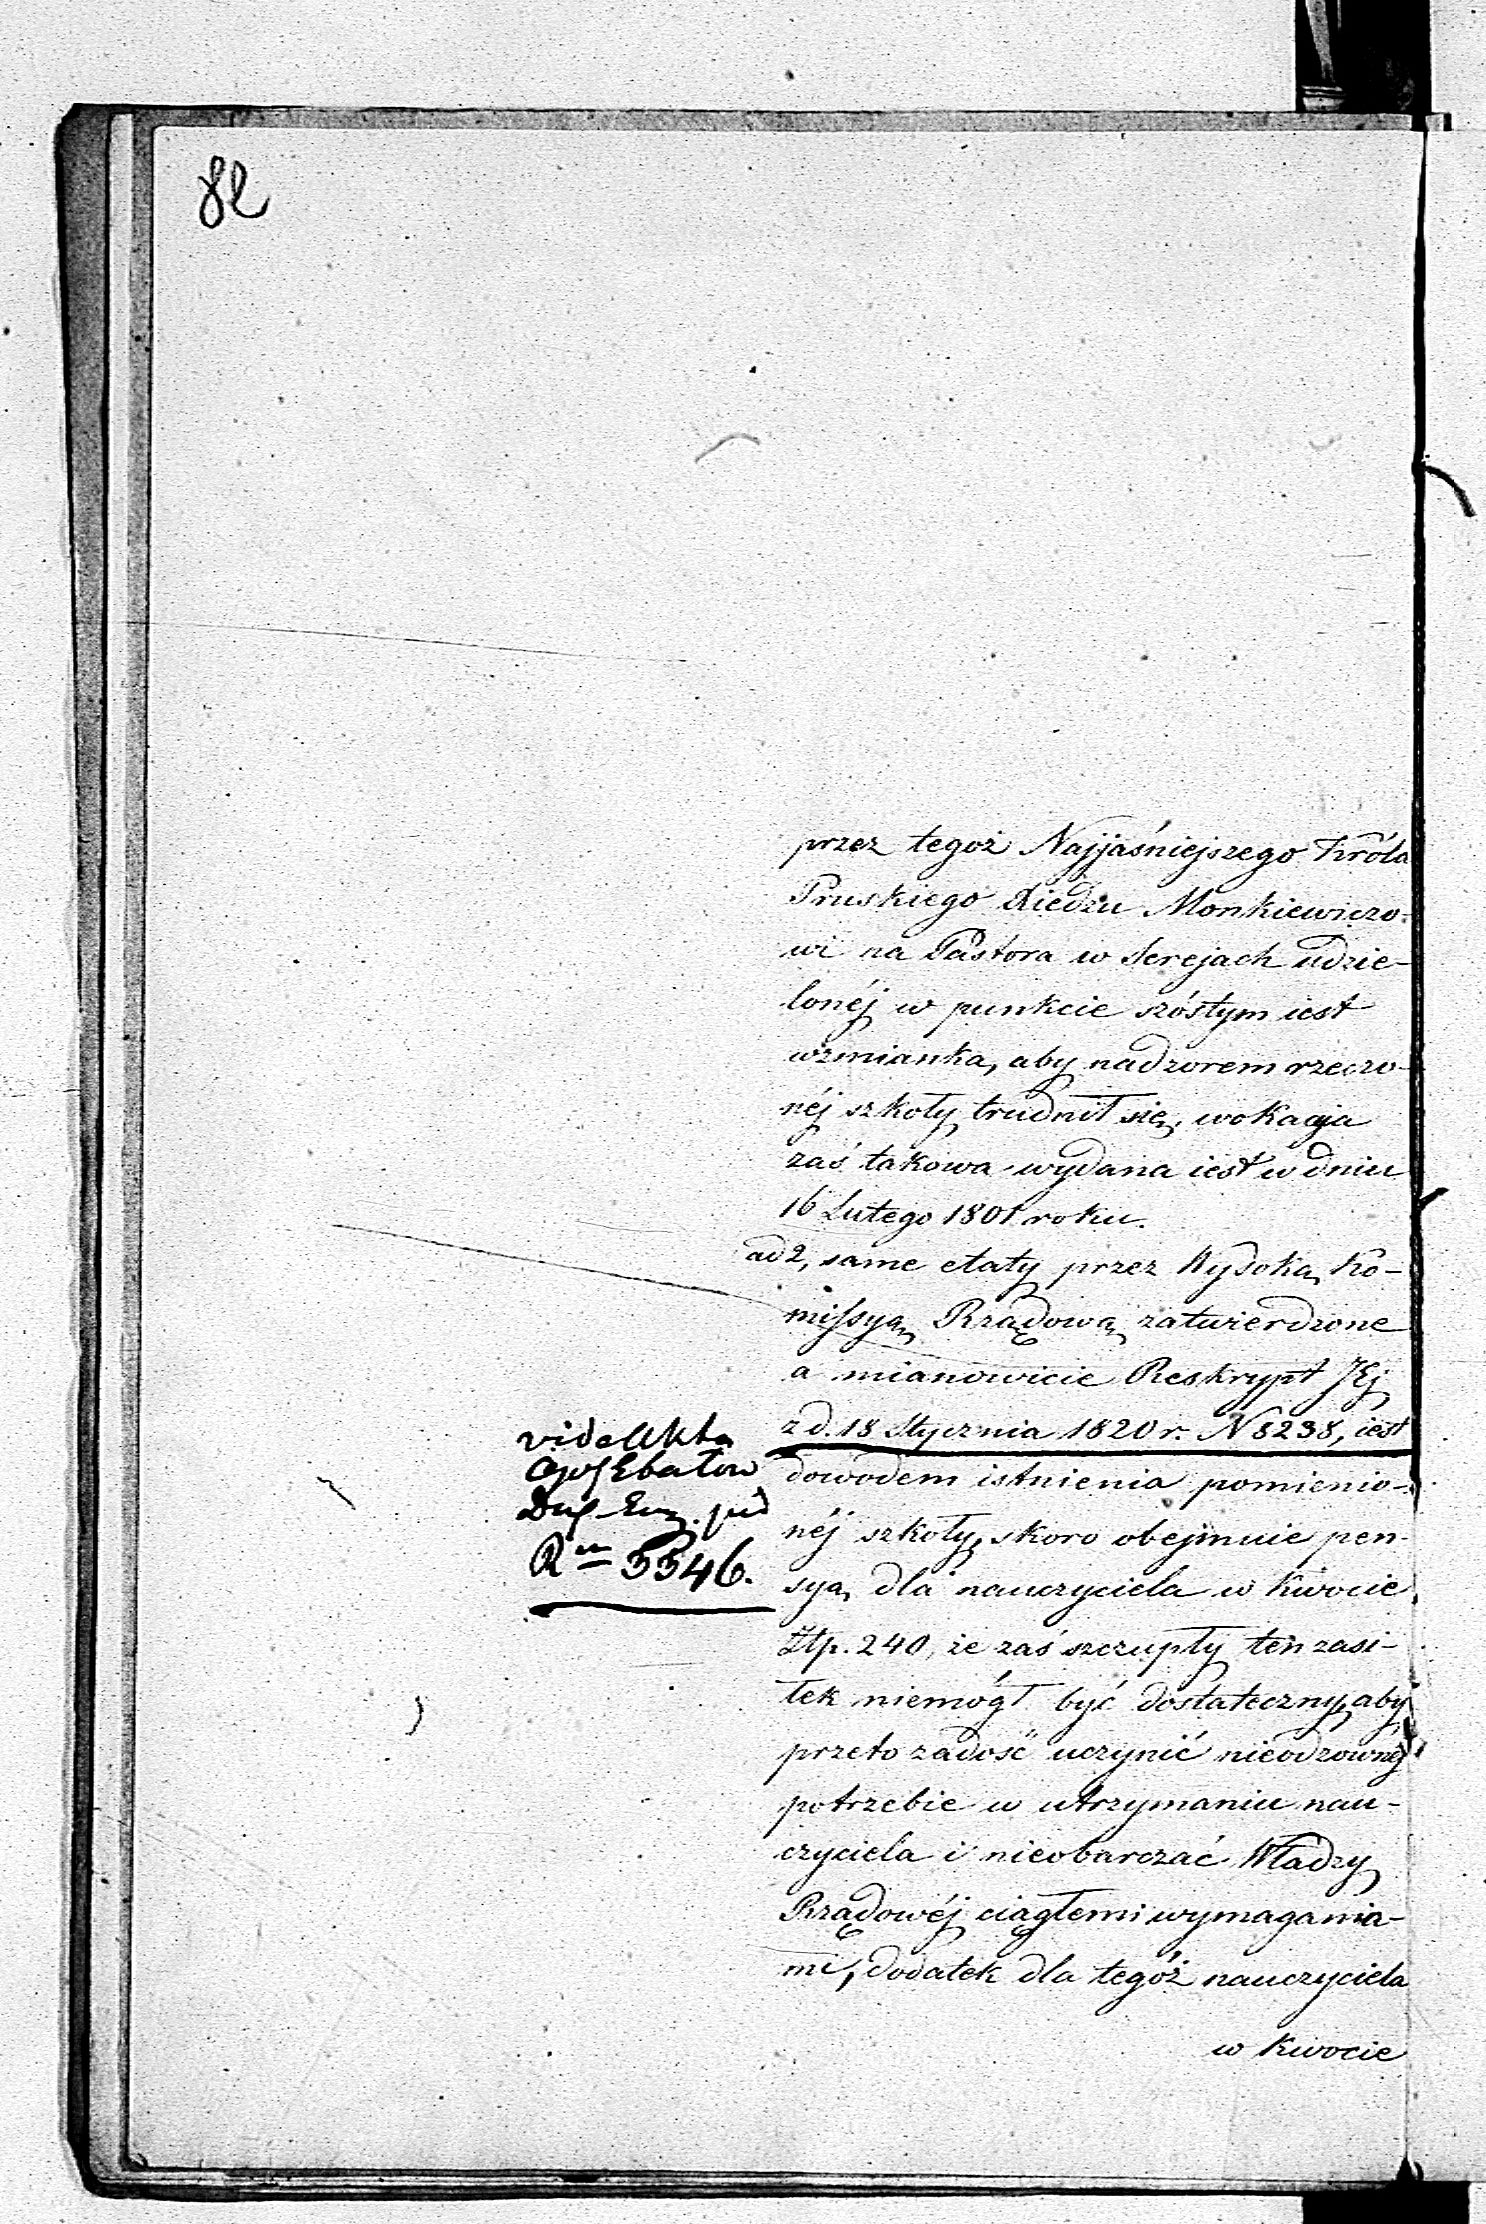 82
przez tegoż Najjaśniejszego Króla
Pruskiego Xiedzu Monkiewiczo-
wi na Pastora w Serejach udzie-
lonéj w punkcie szóstym iest
wzmianka, aby nadzorem rzeczo-
néj szkoły trudnił się, wokacja
zaś takowa wydana iest w dniu
16 Lutego 1801 roku.
ad 2, same etaty przez Wysoką Ko-
missyą Rządową zatwierdzone
a mianowicie Reskrypt JEj
z d. 18 Stycznia 1820 r. N 8238, iest
dowodem istnienia pomienio-
néj szkoły, skoro obejmuie pen-
syą dla nauczyciela w kwocie
Złp. 240, że zaś szczupły ten zasi-
łek niemógł być dostateczny, aby
przeto zadość uczynić nieodzownéj
potrzebie w utrzymaniu nau-
czyciela i nieobarczać Władzy
Rządowéj ciągłemi wymagania-
mi, dodatek dla tegóż nauczyciela
w kwocie
vide Akta
Etatów
R 5546.